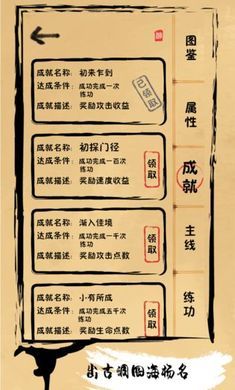 成就名称：初来乍到
达成条件：成功完成一次
练功
成就描述：奖励攻击收益
已领取
成就名称：初探门径
达成条件：成功完成一百次
练功
成就描述：奖励速度收益
领取
成就名称：渐入佳境
达成条件：成功完成一千次
练功
成就描述：奖励攻击点数
领取
成就名称：小有所成
达成条件：成功完成五千次
练功
成就描述：奖励生命点数
领取
图鉴
属性
成就
主线
练功